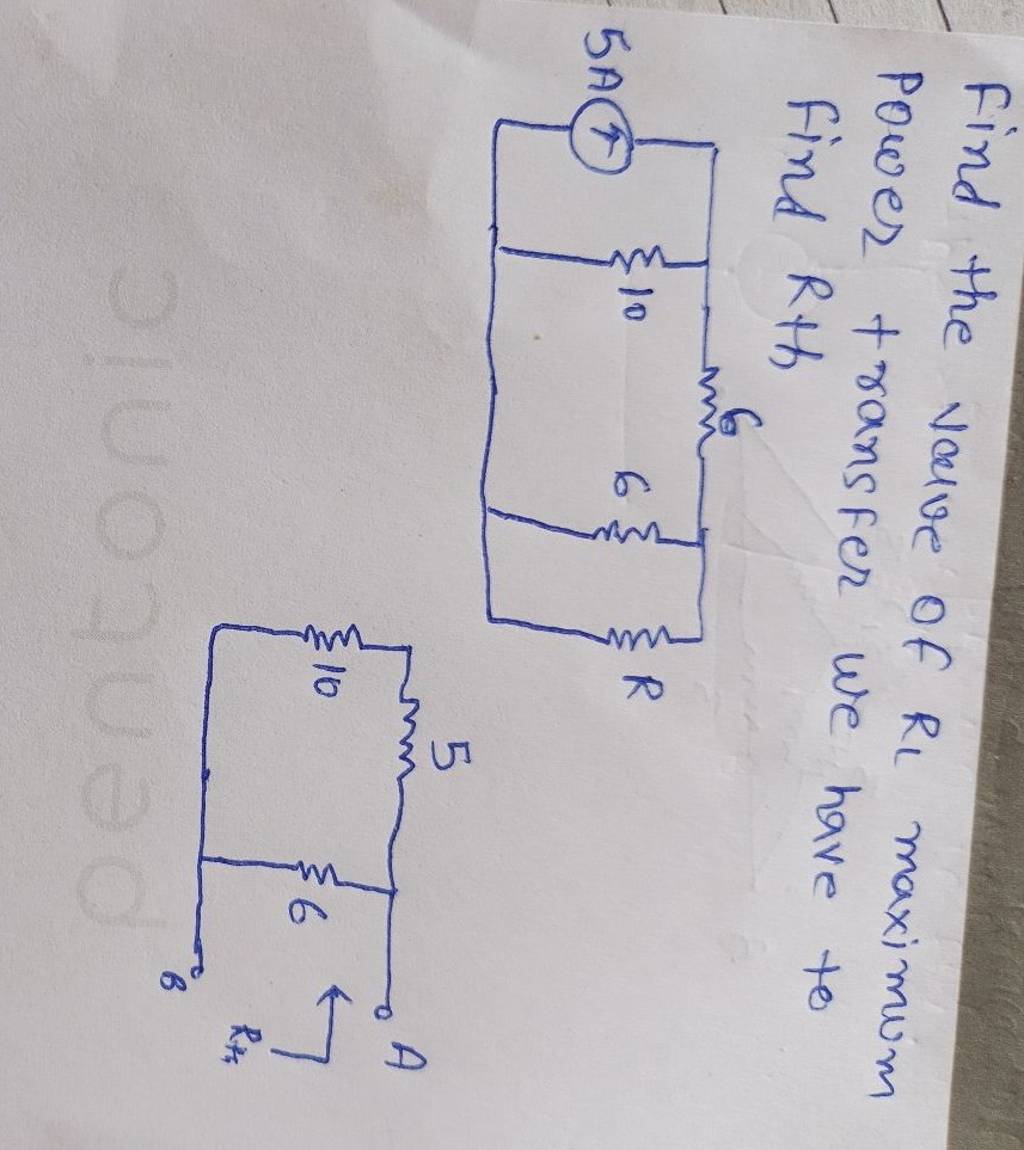 Find the value of RL maximum
Power transfer we have to
find Rth
6
5A
10
6
R
5
A
10
6
Rth
B
pentonic